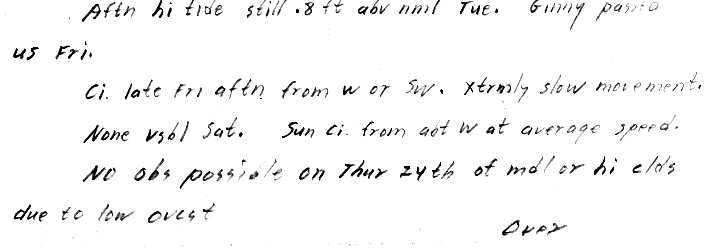 Aftn hi tide still .8 ft abv nml Tue. Ginny passed
us Fri.
Ci. late Fri aftn from W or SW. Xtrmly slow movement.
None vsbl Sat. Sun Ci. from abt W at average speed.
NO obs possible on Thur 24th of mdl or hi clds
due to low ovcst
Over